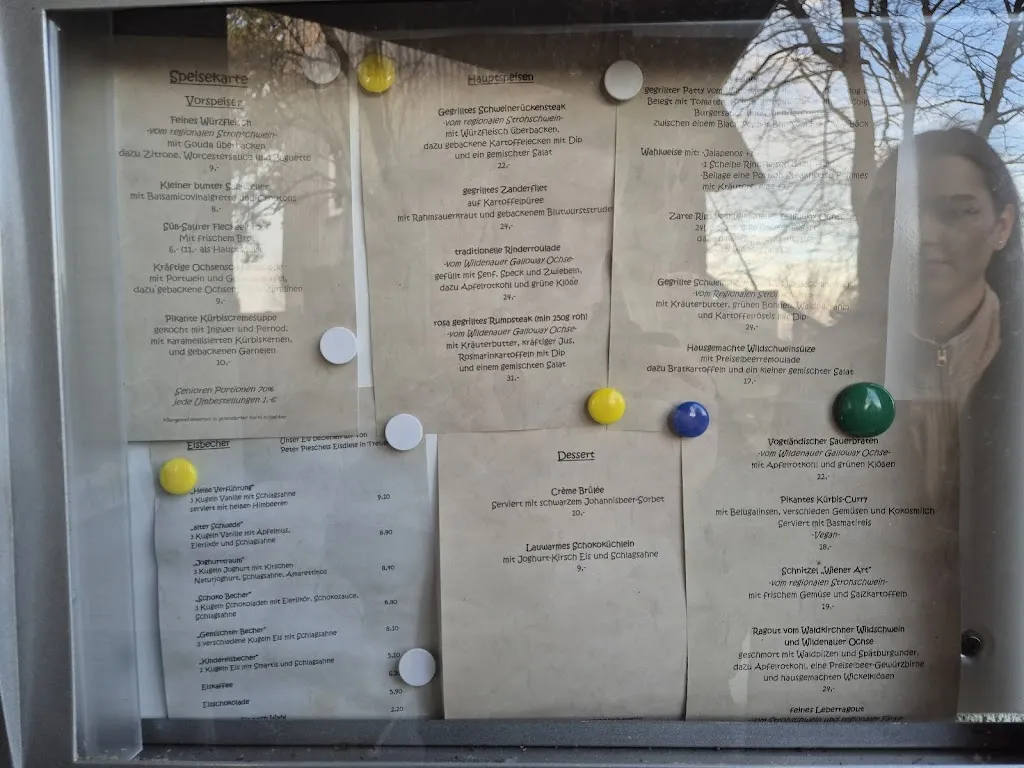 Speisekarte
Vorspeisen
Feines Würzfleisch
-vom regionalen Strohschwein-
mit Gouda überbacken,
dazu Zitrone, Worcestersauce und Baguette
9,-
Kleiner bunter
mit Balsamicovinaigrette und Croutons
8,-
Süß-Saurer
Mit frischem
6,- (11,- als
Kräftige
mit Portwein und
dazu gebackene
9,-
Pikante Kürbiscremesuppe
gekocht mit Ingwer und Pernod,
mit karamellisierten Kürbiskernen,
und gebackenen Garnelen
10,-
Senioren Portionen 70%
jede Umbestellungen 1,-€
Hauptspeisen
Gegrilltes Schweinerückensteak
-vom regionalen Strohschwein-
mit Würzfleisch überbacken,
dazu gebackene Kartoffelecken mit Dip
und ein gemischter Salat
22,-
gegrilltes Zanderfilet
auf Kartoffelpüree
mit Rahmsauerkraut und gebackenem Blutwurststrudel
24,-
traditionelle Rinderroulade
-vom Wildenauer Galloway Ochse-
gefüllt mit Senf, Speck und Zwiebeln,
dazu Apfelrotkohl und grüne Klöße
24,-
rosa gegrilltes Rumpsteak (min 250g roh)
-vom Wildenauer Galloway Ochse-
mit Kräuterbutter, kräftiger Jus,
Rosmarinkartoffeln mit Dip
und einem gemischten Salat
31,-
gegrillter Patty vom
Belegt mit Tomaten
zwischen einem
Wahlweise mit: -Jalapenos
-1 Scheibe
-Beilage eine
mit Kräuter
Zarte
Gegrillte
-vom Regionalen
mit Kräuterbutter, grünen Bohnen,
und Kartoffelröstis mit Dip
24,-
Hausgemachte Wildschweinsülze
mit Preiselbeerremoulade
dazu Bratkartoffeln und ein kleiner gemischter Salat
17,-
Eisbecher
Unser Eis beziehen wir von
Peter Pleschels Eisdiele in
„Heiße Verführung"
3 Kugeln Vanille mit Schlagsahne
serviert mit heißen Himbeeren
9,10
„alter Schwede"
3 Kugeln Vanille mit Apfelmus,
Eierlikör und Schlagsahne
8,90
„Joghurttraum"
3 Kugeln Joghurt mit Kirschen
Naturjoghurt, Schlagsahne, Amarettinos
8,90
„Schoko Becher"
3 Kugeln Schokoladen mit Eierlikör, Schokosauce,
Schlagsahne
8,80
„Gemischter Becher"
3 verschiedene Kugeln Eis mit Schlagsahne
8,10
„Kindereisbecher"
2 Kugeln Eis mit Smartis und Schlagsahne
5,10
Eiskaffee
Eisschokolade
5,90
2,20
Dessert
Crème Brûlée
Serviert mit schwarzem Johannisbeer-Sorbet
10,-
Lauwarmes Schokoküchlein
mit Joghurt-Kirsch Eis und Schlagsahne
9,-
Vogtländischer Sauerbraten
-vom Wildenauer Galloway Ochse-
mit Apfelrotkohl und grünen Klößen
22,-
Pikantes Kürbis-Curry
mit Belugalinsen, verschieden Gemüsen und Kokosmilch
Serviert mit Basmatireis
-Vegan-
18,-
Schnitzel „Wiener Art"
-vom regionalen Strohschwein-
mit frischem Gemüse und Salzkartoffeln
19,-
Ragout vom Waldkirchner Wildschwein
und Wildenauer Ochse
geschmort mit Waldpilzen und Spätburgunder,
dazu Apfelrotkohl, eine Preiselbeer-Gewürzbirne
und hausgemachten Wickelklößen
24,-
feines Leberragout